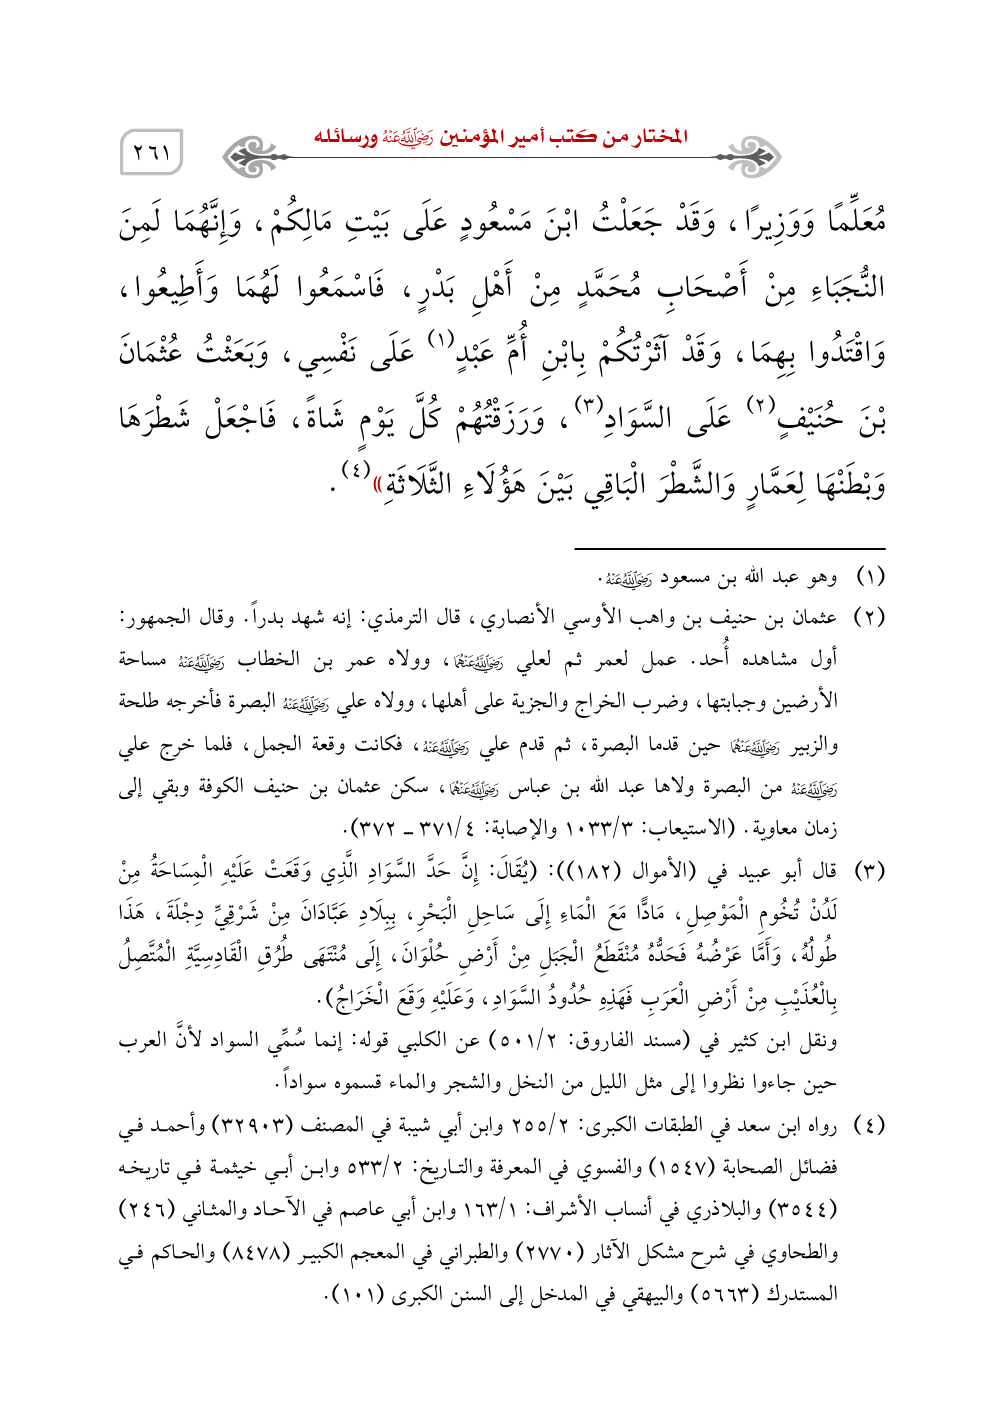 المختار من كتب أمير المؤمنين رَضِيَ اللَّهُ عَنْهُ ورسائله
٢٦١
مُعَلِّمًا وَوَزِيرًا، وَقَدْ جَعَلْتُ ابْنَ مَسْعُودٍ عَلَى بَيْتِ مَالِكُمْ، وَإِنَّهُمَا لَمِنَ
النُّجَبَاءِ مِنْ أَصْحَابِ مُحَمَّدٍ مِنْ أَهْلِ بَدْرٍ، فَاسْمَعُوا لَهُمَا وَأَطِيعُوا،
وَاقْتَدُوا بِهِمَا، وَقَدْ آثَرْتُكُمْ بِابْنِ أُمِّ عَبْدٍ(١) عَلَى نَفْسِي، وَبَعَثْتُ عُثْمَانَ
بْنَ حُنَيْفٍ(٢) عَلَى السَّوَادِ(٣)، وَرَزَقْتُهُمْ كُلَّ يَوْمٍ شَاةً، فَاجْعَلْ شَطْرَهَا
وَبْطَنْهَا لِعَمَّارٍ وَالشَّطْرَ الْبَاقِي بَيْنَ هَؤُلَاءِ الثَّلَاثَةِ»(٤).
(١) وهو عبد الله بن مسعود رَضِيَ اللَّهُ عَنْهُ.
(٢) عثمان بن حنيف بن واهب الأوسي الأنصاري، قال الترمذي: إنه شهد بدراً. وقال الجمهور:
أول مشاهده أُحد. عمل لعمر ثم لعلي رَضِيَ اللَّهُ عَنْهُمَا، وولاه عمر بن الخطاب رَضِيَ اللَّهُ عَنْهُ مساحة
الأرضين وجبايتها، وضرب الخراج والجزية على أهلها، وولاه علي رَضِيَ اللَّهُ عَنْهُ البصرة فأخرجه طلحة
والزبير رَضِيَ اللَّهُ عَنْهُمَا حين قدما البصرة، ثم قدم علي رَضِيَ اللَّهُ عَنْهُ، فكانت وقعة الجمل، فلما خرج علي
رَضِيَ اللَّهُ عَنْهُ من البصرة ولاها عبد الله بن عباس رَضِيَ اللَّهُ عَنْهُمَا، سكن عثمان بن حنيف الكوفة وبقي إلى
زمان معاوية. (الاستيعاب: ١٠٣٣/٣ والإصابة: ٣٧١/٤ ـ ٣٧٢).
(٣) قال أبو عبيد في (الأموال (١٨٢)): (يُقَالَ: إِنَّ حَدَّ السَّوَادِ الَّذِي وَقَعَتْ عَلَيْهِ الْمِسَاحَةُ مِنْ
لَدُنْ تُخُومِ الْمَوْصِلِ، مَادًّا مَعَ الْمَاءِ إِلَى سَاحِلِ الْبَحْرِ، بِبِلَادِ عَبَّادَانَ مِنْ شَرْقِيِّ دِجْلَةَ، هَذَا
طُولُهُ، وَأَمَّا عَرْضُهُ فَحَدُّهُ مُنْقَطَعُ الْجَبَلِ مِنْ أَرْضِ حُلْوَانَ، إِلَى مُنْتَهَى طُرُقِ الْقَادِسِيَّةِ الْمُتَّصِلُ
بِالْعُذَيْبِ مِنْ أَرْضِ الْعَرَبِ فَهَذِهِ حُدُودُ السَّوَادِ، وَعَلَيْهِ وَقَعَ الْخَرَاجُ).
ونقل ابن كثير في (مسند الفاروق: ٥٠١/٢) عن الكلبي قوله: إنما سُمِّي السواد لأنَّ العرب
حين جاءوا نظروا إلى مثل الليل من النخل والشجر والماء قسموه سواداً.
(٤) رواه ابن سعد في الطبقات الكبرى: ٢٥٥/٢ وابن أبي شيبة في المصنف (٣٢٩٠٣) وأحمـد فـي
فضائل الصحابة (١٥٤٧) والفسوي في المعرفة والتـاريخ: ٥٣٣/٢ وابـن أبـي خيثمـة فـي تاريخـه
(٣٥٤٤) والبلاذري في أنساب الأشراف: ١٦٣/١ وابن أبي عاصم في الآحـاد والمثـاني (٢٤٦)
والطحاوي في شرح مشكل الآثار (٢٧٧٠) والطبراني في المعجم الكبيـر (٨٤٧٨) والحـاكم فـي
المستدرك (٥٦٦٣) والبيهقي في المدخل إلى السنن الكبرى (١٠١).